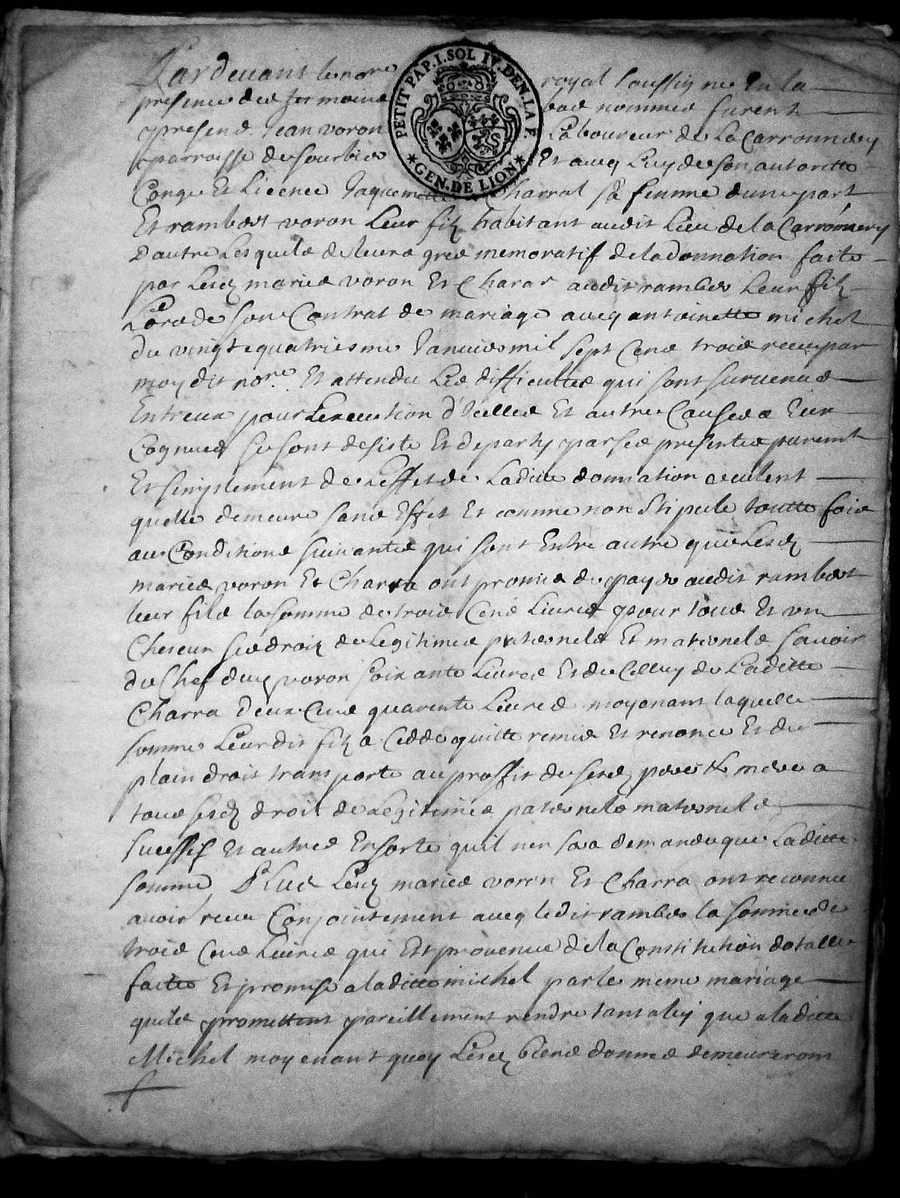 PETIT PAP. I. SOL IV. DEN. LA F.
GEN. DE LION
Pardevant le nore royal soussigne En la
presence des tesmoins bas nommes furent
presens Jean voron Laboureur de La Carronnery
parroisse de sourbie Et avecq Luy de son autoritte
Conge Et Licence Jaquemette Charral sa femme d'une part
Et rambert voron Leur filz habitant audit Lieu de la Carronnery
d'autre Lesquels de leurs gres memoratif de la donnation faitte
par Lesdz maries voron Et Charar audit rambert Leur filz
Lors de son Contrat de mariage avecq antoinette michel
du vingt quatriesme Janvier mil sept Cens trois receu par
moy dit nore. Et attendu Les difficultes qui sont survenues
Entreux pour Lexecution d'Icelles Et autres Causes a Eux
Cognues se sont desiste Et departy par ses presentes purement
Et simplement de Leffet de Laditte donnation veulent
quelle demeure sans Effet Et comme non stipule toutte fois
aux Conditions suivantes qui sont Entre autre que Lesdz
maries voron Et Charra ont promis de payer audit rambert
leur fils la somme de trois Cens Livres pour tous Et un
Chescun ses droiz de Legitimes paternels Et maternels savoir
du Chef dudz voron soixante Livres Et de Celluy de Laditte
Charra deux Cens quarente Livres moyenant laquelle
somme Leurdit filz a Cedde quitte remis Et renonce Et de
plain droit transporte au proffit de sesdz pere & mere a
tous sesdz droiz de Legitimes paternels maternels
sucessif Et autres En sorte quil nen sera demande que Laditte
somme Plus Lesdz maries voron Et Charra ont reconnu
avoir receu Conjointement avecq ledit rambert la somme de
trois Cens Livres qui Est provenue de la Constitution dotalle
faitte Et promise a laditte michel par le meme mariage
quils promettent pareillement rendre tant a luy que a laditte
Michel moyenant quoy Lesdz biens donnes demeureront